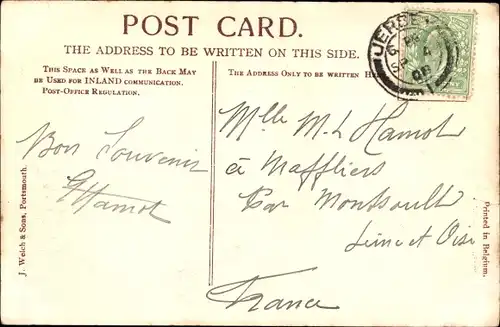 POST CARD.
THE ADDRESS TO BE WRITTEN ON THIS SIDE.
THIS SPACE AS WELL AS THE BACK MAY
BE USED FOR INLAND COMMUNICATION.
POST-OFFICE REGULATION.
THE ADDRESS ONLY TO BE WRITTEN HERE
JERSEY
SP 4
Bon Souvenir
GHamot
Mlle M. L Hamot
à Maffliers
Par Montsoult
Seine et Oise
France
J. Welch & Sons, Portsmouth.
Printed in Belgium.